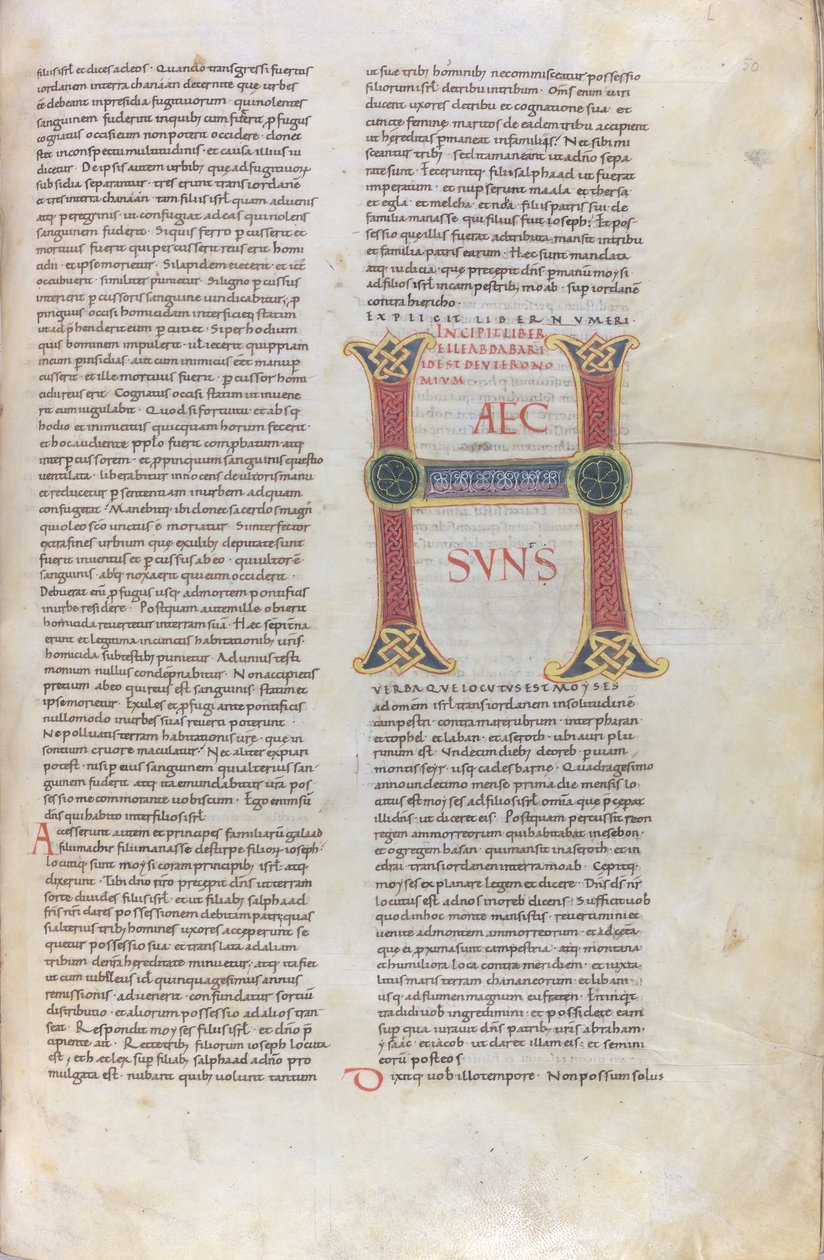 L
50
filiis isrl et dices ad eos · Quando transgressi fueritis
iordanem in terra chanáán decernite que urbes
ee debeant in presidia fugitivorum · qui nolentes
sanguinem fuderint in quib; cum fuerit profugus
cognatus occisi eum non poterit occidere · donec
stet in conspectu multitudinis · et causa illius iu
dicetur · De ipsis autem urbib; que ad fugitivorum
subsidia separantur · tres erunt trans iordanē
et tres in terra chanáán · tam filiis isrl quam advenis
atq; peregrinis · ut confugiat ad eas qui nolens
sanguinem fuderit · Si quis ferro percusserit et
mortuus fuerit qui percusserit reus erit homi
cidii · et ipse morietur · Si lapidem eiecerit · et ictus
occubuerit · similiter punietur · Si ligno percussus
interierit percussoris sanguine vindicabitur; pro
pinquus occisi homicidam interficiet statim
ut adprehenderit eum percutiet · Si per hodium
quis hominem impulerit · vel iecerit quippiam
in eum per insidias · aut cum inimicus eēt manu per
cusserit · et ille mortuus fuerit · percussor homi
cidii reus erit · Cognatus occisi statim ut invene
rit eum iugulabit · Quod si fortuitu · et absq;
hodio et inimicitiis quicquam horum fecerit ·
et hoc audiente pplo fuerit comprobatum · atq;
inter percussorem · et propinquum sanguinis questio
ventilata · liberabitur innocens de ultoris manu
et reducetur per sententiam in urbem ad quam
confugerat · Manebitq; ibi donec sacerdos magn
qui oleo sco unctus ē moriatur · Si interfector
extra fines urbium que exulib; deputate sunt
fuerit inventus et percussus ab eo · qui ultor ē
sanguinis · absq; noxa erit qui eum occiderit ·
Debuerat enī profugus usq; ad mortem pontificis
in urbe residere · Postquam autem ille obierit
homicida revertetur in terram suā · Hec sempitna
erunt et legitima in cunctis habitationib; vris ·
homicida sub testib; punietur · Ad unius testi
monium nullus condepnabitur · Non accipietis
pretium ab eo qui reus est sanguinis · statim et
ipse morietur · Exules et profugi ante pontificis
nullo modo in urbes suas reverti poterunt ·
Ne polluatis terram habitationis vrē · que in
sontium cruore maculatur · Nec aliter expiari
potest · nisi per eius sanguinem qui alterius san
guinem fuderit · atq; ita emundabitur vra pos
sessio me commorante vobiscum · Ego enim sū
dns qui habito inter filios isrl
Accesserunt autem et principes familiarū galaad
filii machir filii manasse de stirpe filiorū ioseph ·
locutiq; sunt moysi coram principib; isrl · atq;
dixerunt · Tibi dno nro precepit dns ut terram
sorte divides filiis isrl · et ut filiab; salphaad
fris nri dares possessionem debitam patri; quas
si alterius trib; homines uxores acceperint se
quetur possessio sua · et translata ad aliam
tribum de nra hereditate minuetur; atq; ita fiet
ut cum iubileus id quinquagesimus annus
remissionis · advenerit · confundatur sortiū
distributio · et aliorum possessio ad alios tran
seat · Respondit moyses filiis isrl · et dno pre
cipiente ait · Recte trib; filiorum ioseph locuta
est · et haec lex super filiab; salphaad a dno pro
mulgata est · nubant quib; volunt tantum
ut sue trib; hominib; ne commisceatur possessio
filiorum isrl de tribu in tribum · Oms enim viri
ducent uxores de tribu et cognatione sua · et
cuncte femine maritos de eadem tribu accipient
ut hereditas permaneat in familiis · Nec sibi mi
sceantur trib; sed ita maneant ut a dno sepa
rate sunt · Feceruntq; filie salphaad ut fuerat
imperatum · et nupserunt maala · et thersa ·
et egla · et melcha · et noa · filiis patris sui · de
familia manasse · qui filius fuit ioseph · Et pos
sessio que illis fuerat adtributa mansit in tribu
et familia patris earum · Haec sunt mandata
atq; iudicia · que precepit dns per manū moysi
ad filios isrl in campestrib; moab · super iordanē
contra hiericho ·
EXPLICIT LIBER NUMERI ·
INCIPIT LIBER
ELLEABDABARI
ID EST DEUTERONO
MIUM
HAEC
SVNS
VERBA QUE LOCUTUS EST MOYSES
ad omēm isrl trans iordanem in solitudine
campestri contra mare rubrum · inter pharan ·
et tophel · et laban · et aseroth · ubi auri plu
rimum est · Undecim dieb; de oreb · per viam
montis seyr · usq; cades barne · Quadragesimo
anno undecimo mense prima die mensis lo
cutus est moyses ad filios isrl omīa que preceperat
illi dns · ut diceret eis · Postquam percussit seon
regem ammorreorum qui habitabat in esebon ·
et og regem basan · qui mansit in aseroth · et in
edrai trans iordanen in terra moab · Cepitq;
moyses explanare legem et dicere · Dns ds nr
locutus est ad nos in oreb dicens · Sufficit vob
quod in hoc monte mansistis · revertimini et
venite ad montem ammorreorum · et ad ceta
que ei proxima sunt campestria · atq; montana
et humiliora loca contra meridiem · et iuxta
litus maris terram chananeorum · et libani
usq; ad flumen magnum eufraten · En inquit
tradidi vob ingredimini · et possidete eam
super qua iuravit dns patrib; vris abraham ·
ysáác · et iacob · ut daret illam eis · et semini
eorū post eos ·
Dixitq; vob illo tempore · Non possum solus